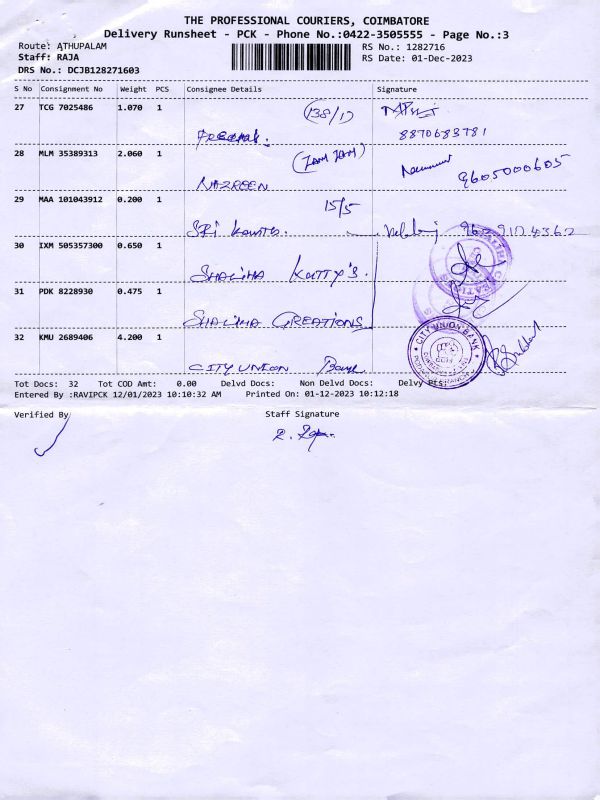 THE PROFESSIONAL COURIERS, COIMBATORE
Delivery Runsheet - PCK - Phone No.:0422-3505555 - Page No.:3
Route: ATHUPALAM RS No.: 1282716
Staff: RAJA RS Date: 01-Dec-2023
DRS No.: DCJB128271603
S No Consignment No Weight PCS Consignee Details Signature
27 TCG 7025486 1.070 1 (138/17)
8870683781
28 MLM 35389313 2.060 1 (ZAM ZAM)
NAZREEN 9605000605
29 MAA 101043912 0.200 1 15/5
SRI
30 IXM 505357300 0.650 1
SHALIHA KUTTY'S.
31 PDK 8228930 0.475 1
SHALIHA CREATIONS
32 KMU 2689406 4.200 1 CITY UNION BANK
CITY UNION Bank
Tot Docs: 32 Tot COD Amt: 0.00 Delvd Docs: Non Delvd Docs: Delvy Pts:
Entered By :RAVIPCK 12/01/2023 10:10:32 AM Printed On: 01-12-2023 10:12:18
Verified By Staff Signature